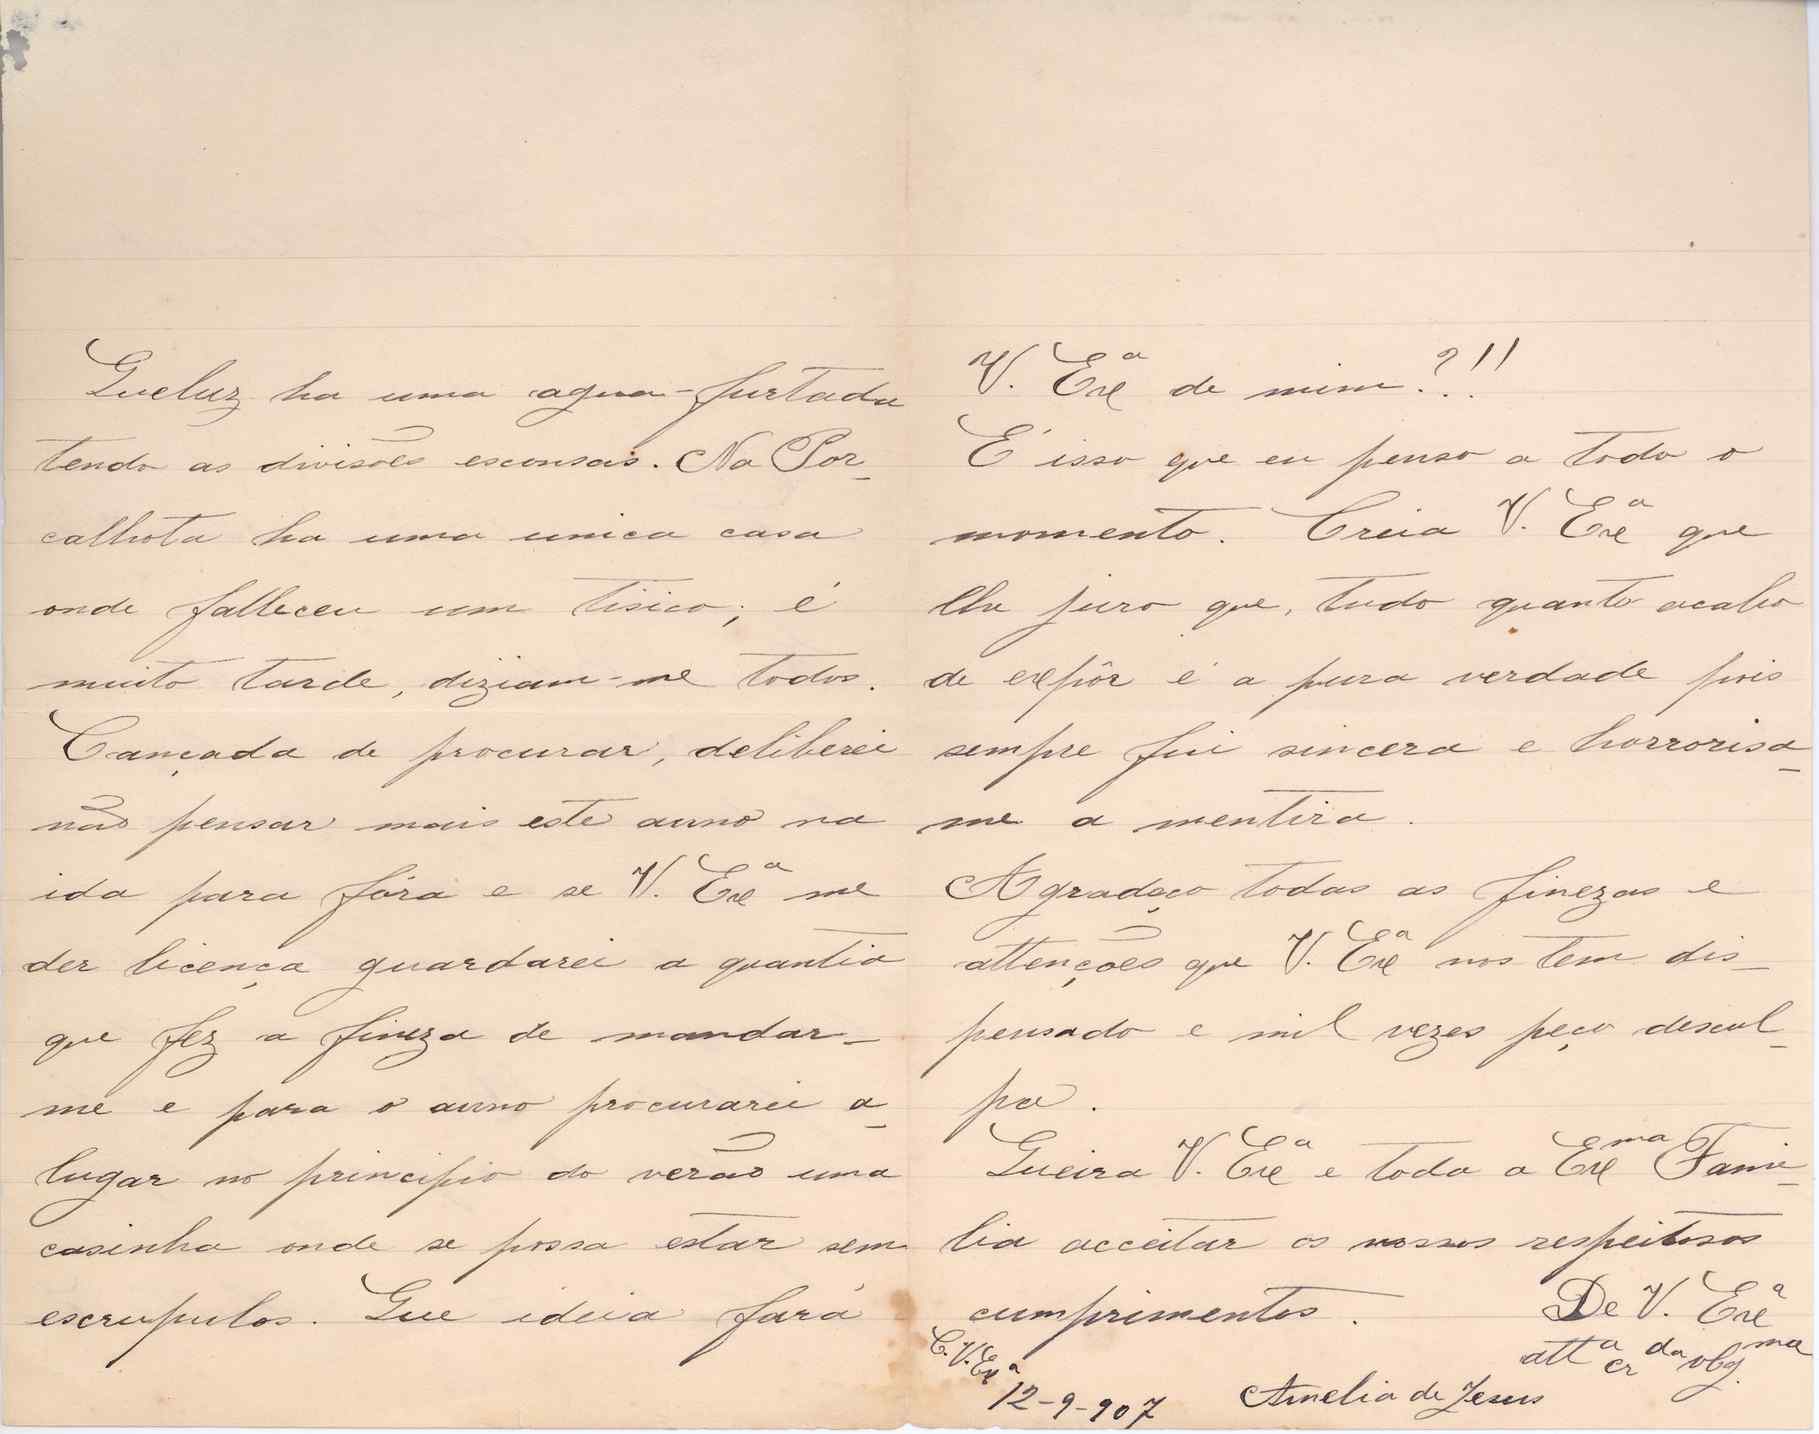 Queluz ha uma agua-furtada
tendo as divisões esconsas. Na Por-
calhota ha uma unica casa
onde falleceu um tisico; é
muito tarde, diziam-me todos.
Cançada de procurar, deliberei
não pensar mais este anno na
ida para fóra e se V. Exª me
der licença guardarei a quantia
que fez a fineza de mandar-
me e para o anno procurarei a-
lugar no principio do verão uma
casinha onde se possa estar sem
escrupulos. Que ideia fará
V. Exª de mim?!!
É isso que eu penso a todo o
momento. Creia V. Exª que
lhe juro que, tudo quanto acabo
de expôr é a pura verdade pois
sempre fui sincera e horrorisa-
me a mentira.
Agradeço todas as finezas e
attenções que V. Exª nos tem dis-
pensado e mil vezes peço descul-
pa.
Queira V. Exª e toda a Exma Fami-
lia acceitar os nossos respeitosos
cumprimentos.
De V. Exª
attª crda obgma
C. V. Exª
12-9-907
Amelia de Jesus